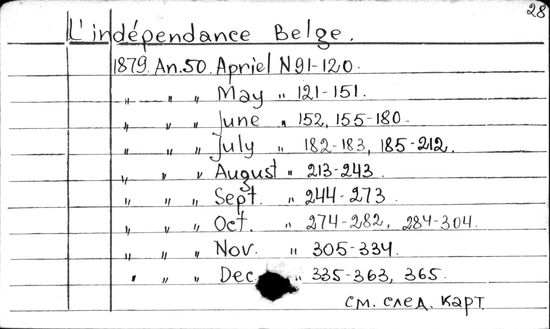 28
L'indépendance Belge.
1879. An. 50. Apriel N 91-120.
" " " May " 121-151.
" " " June " 152, 155-180.
" " " July " 182-183, 185-212.
" " " August " 213-243
" " " Sept. " 244-273
" " " Oct. " 274-282, 284-304.
" " " Nov. " 305-334.
" " " Dec " 335-363, 365.
см. след. карт